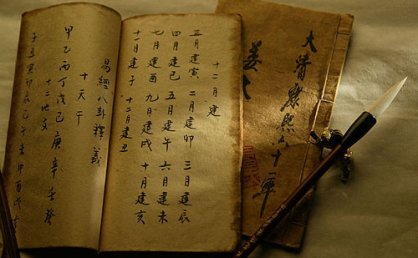 大清康熙六十一年
十二月建
正月建寅 二月建卯 三月建辰
四月建巳 五月建午 六月建未
七月建酉 九月建戌 十月建亥
十一月建子 十二月建丑
易經八卦釋義
十天干
甲乙丙丁戊己庚辛壬癸
十二地支
子丑寅卯辰巳午未申酉戌